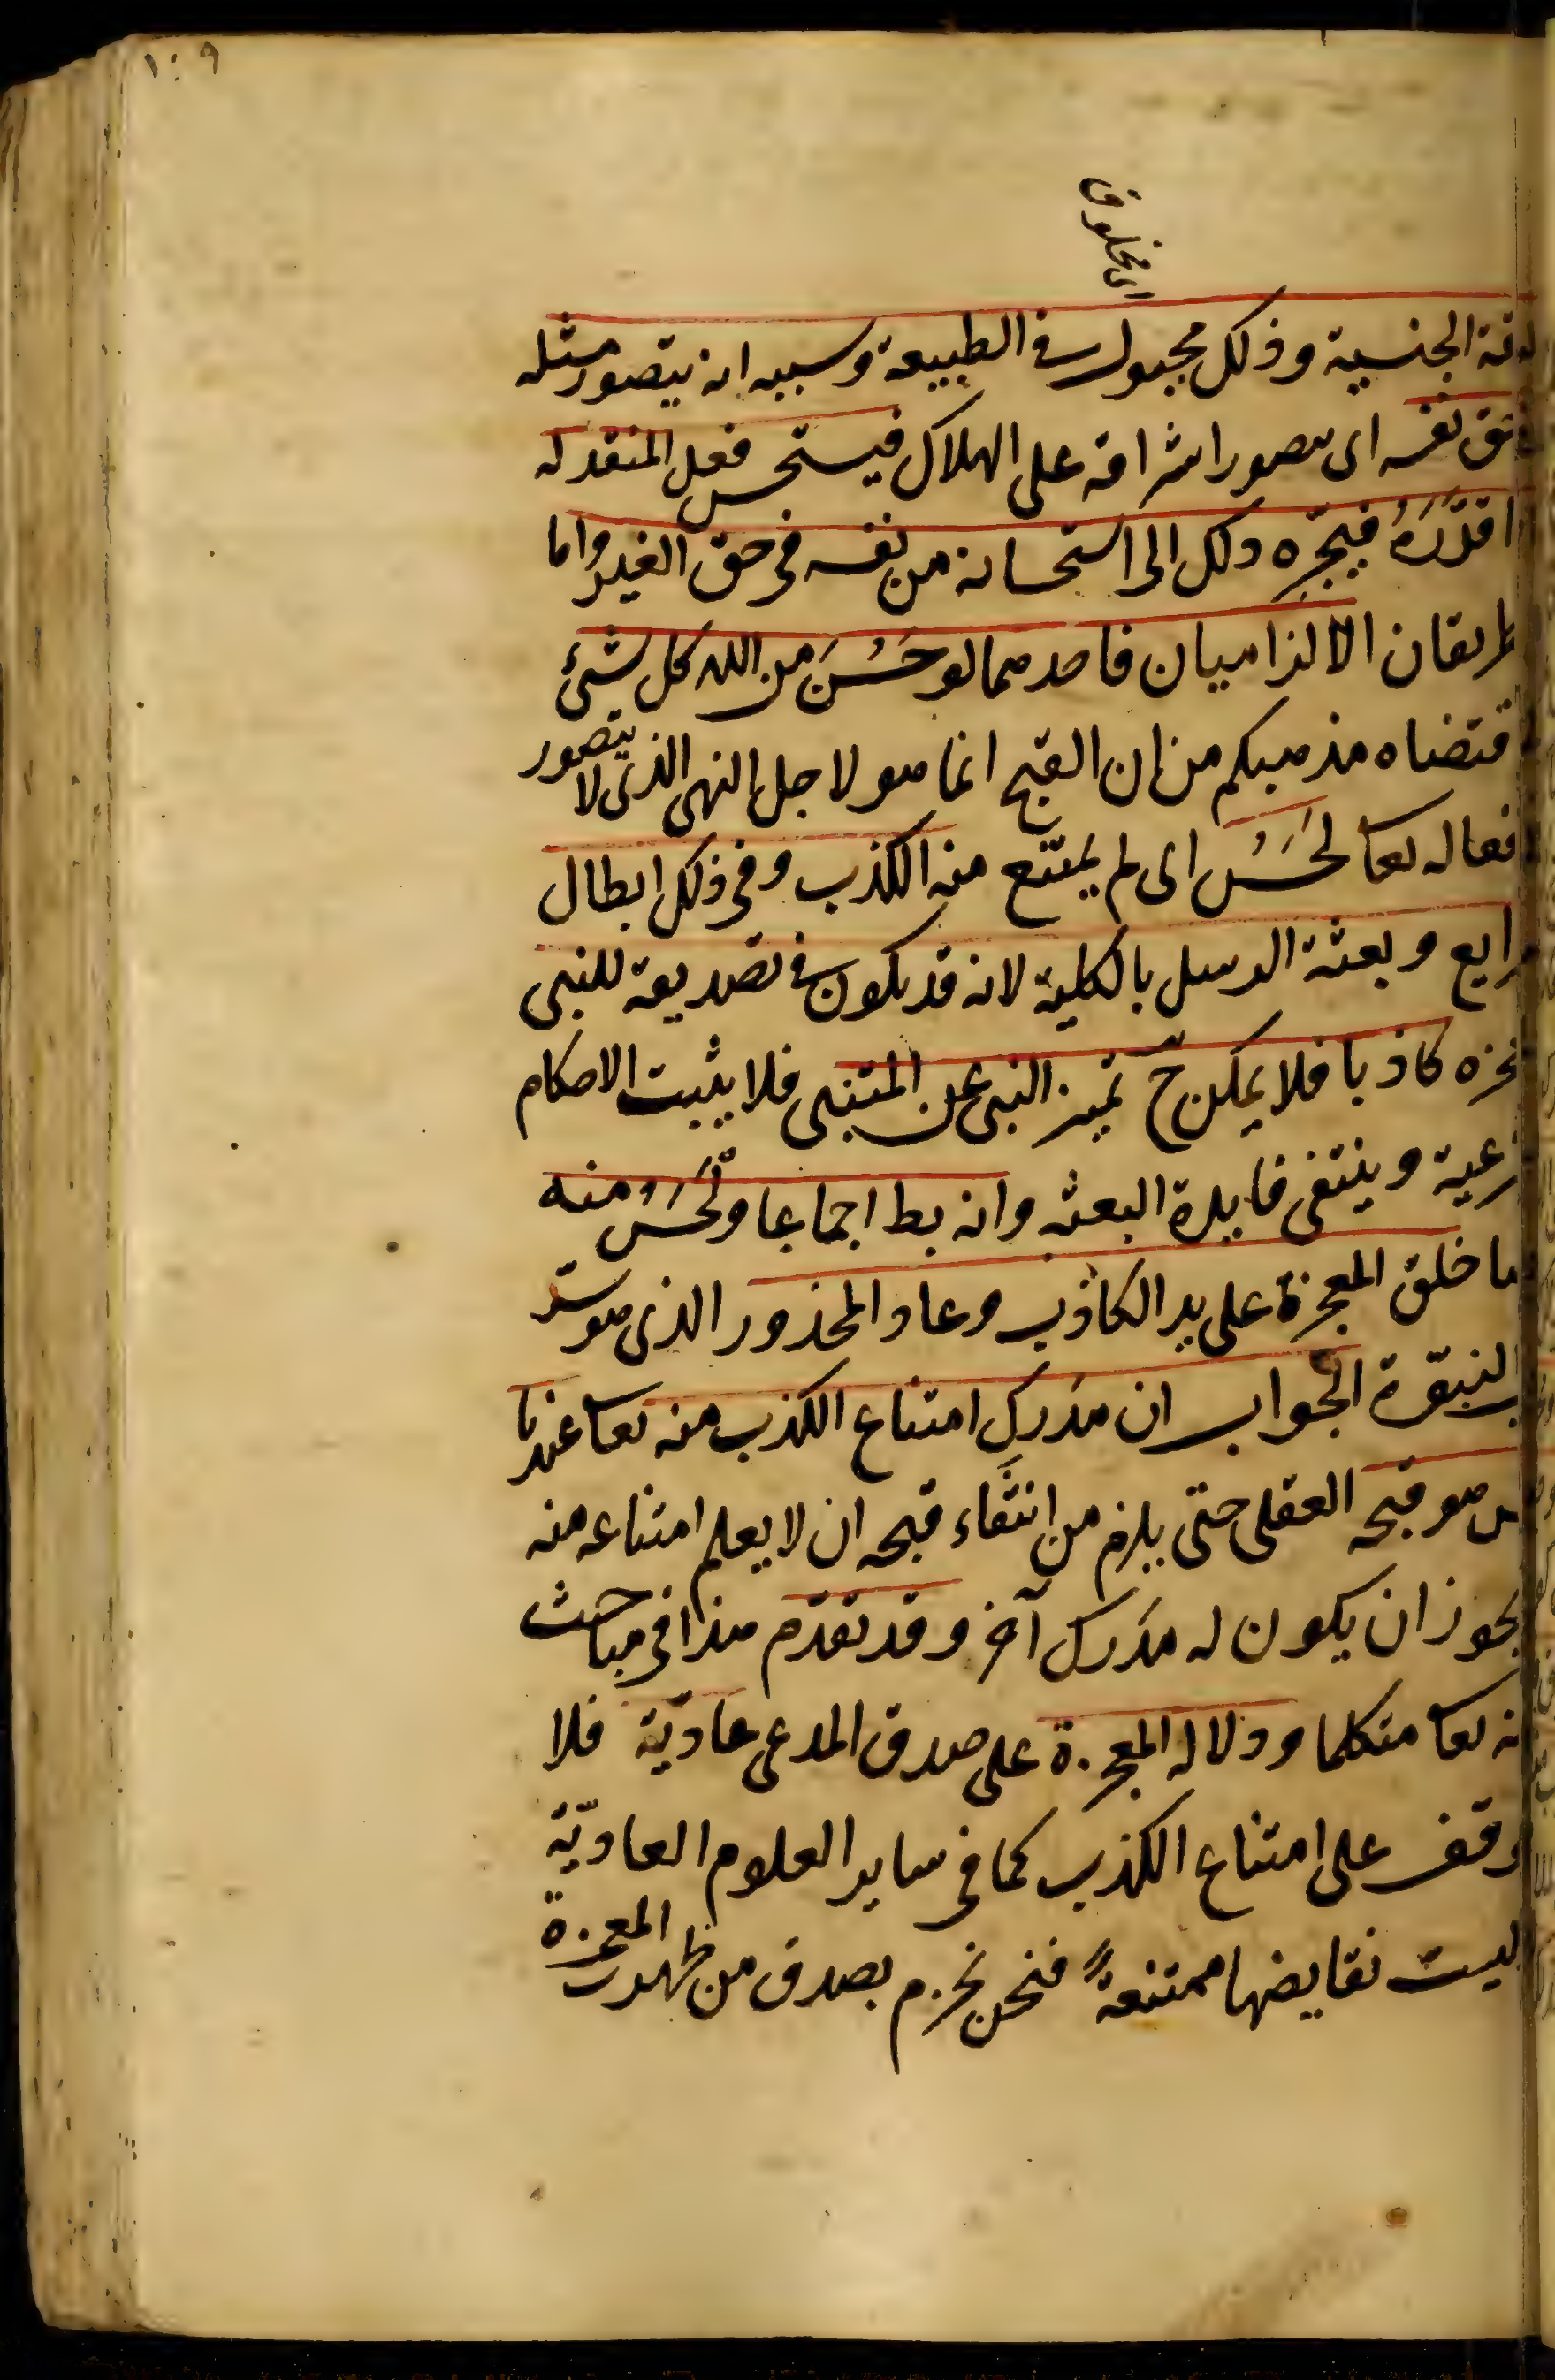 ١٠٩
اى مخلوق
لرقة الجنسية وذلك مجبول فى الطبيعة وسببه انه يتصور مثله
فى حق نفسه اى يتصور اشرافه على الهلاك فيستحسن فعل المنقذ له
اذا قدّره فيجره ذلك الى استحسانه من نفسه فى حق الغير واما
الطريقان الالزاميان فاحدهما لو حَسُنَ من الله كل شئ
اقتضاه مذهبكم من ان القبح انما هو لاجل النهى الذى لا يتصور
افعاله تعا لحَسُن اى لم يمتنع منه الكذب وفى ذلك ابطال
الشرايع وبعثة الرسل بالكلية لانه قد يكون فى تصديقه للنبى
كاذبا فلا يمكن ح تميز النبى عن المتنبى فلا يثبت الاحكام
الشرعية وينتفى فايدة البعثه وانه بط اجماعا ولحَسُن منه
ايضا خلق المعجزة على يد الكاذب وعاد المحذور الذى هو سدّ
باب النبوّة الجواب ان مَدرك امتناع الكذب منه تعا عندنا
ليس هو قبحه العقلى حتى يلزم من انتفاء قبحه ان لا يعلم امتناعه منه
يجوز ان يكون له مَدرك آخر وقد تقدّم هذا فى مباحث
كونه تعا متكلما ودلاله المعجزة على صدق المدعى عاديّة فلا
يتوقف على امتناع الكذب كما فى ساير العلوم العاديّة
ليست نقايضها ممتنعةً فنحن نجزم بصدق من ظهرت المعجزة